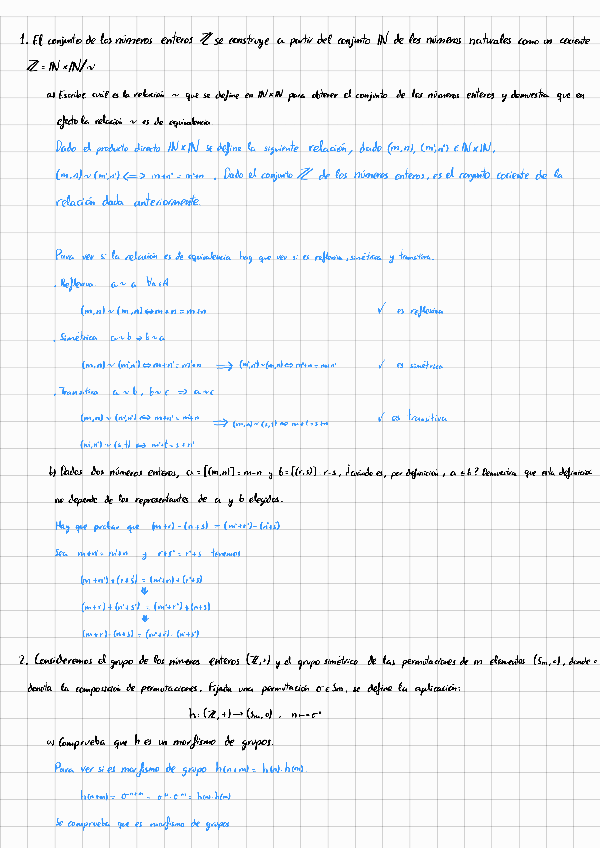 1. El conjunto de los números enteros ℤ se construye a partir del conjunto ℕ de los números naturales como un cociente
ℤ = ℕ×ℕ/∼
a) Escribe cuál es la relación ∼ que se define en ℕ×ℕ para obtener el conjunto de los números enteros y demuestra que en
efecto la relación ∼ es de equivalencia.
Dado el producto directo ℕ×ℕ se define la siguiente relación, dado (m,n), (m',n') ∈ ℕ×ℕ,
(m,n) ∼ (m',n') ⟺ m+n' = m'+n . Dado el conjunto ℤ de los números enteros, es el conjunto cociente de la
relación dada anteriormente.
Para ver si la relación es de equivalencia hay que ver si es reflexiva, simétrica y transitiva.
. Reflexiva a ∼ a ∀a∈A
(m,n) ∼ (m,n) ⟺ m+n = m+n ✓ es reflexiva
. Simétrica a∼b ⟺ b∼a
(m,n) ∼ (m',n') ⟺ m+n' = m'+n ⟹ (m',n') ∼ (m,n) ⟺ m'+n = m+n' ✓ es simétrica
. Transitiva a∼b , b∼c ⟹ a∼c
(m,n) ∼ (m',n') ⟺ m+n' = m'+n ⟹ (m,n) ∼ (s,t) ⟺ m+t = s+n ✓ es transitiva
(m',n') ∼ (s,t) ⟺ m'+t = s+n'
b) Dados dos números enteros, a = [(m,n)] = m-n y b = [(r,s)] r-s, ¿cuándo es, por definición, a ± b? Demuestra que esta definición
no depende de los representantes de a y b elegidos.
Hay que probar que (m+r) - (n+s) = (m'+r') - (n'+s')
Sea m+n' = m'+n y r+s' = r'+s tenemos
(m+n') + (r+s') = (m'+n) + (r'+s)
⇓
(m+r) + (n'+s') = (m'+r') + (n+s)
⇓
(m+r) - (n+s) = (m'+r') - (n'+s')
2. Consideremos el grupo de los números enteros (ℤ,+) y el grupo simétrico de las permutaciones de m elementos (Sm,∘), donde ∘
denota la composición de permutaciones. Fijada una permutación σ ∈ Sm, se define la aplicación:
h: (ℤ,+) → (Sm,∘) , n ↦ σⁿ
a) Comprueba que h es un morfismo de grupos.
Para ver si es morfismo de grupo h(n+m) = h(n)·h(m)
h(n+m) = σⁿ⁺ᵐ = σⁿ · σᵐ = h(n)·h(m)
Se comprueba que es morfismo de grupos